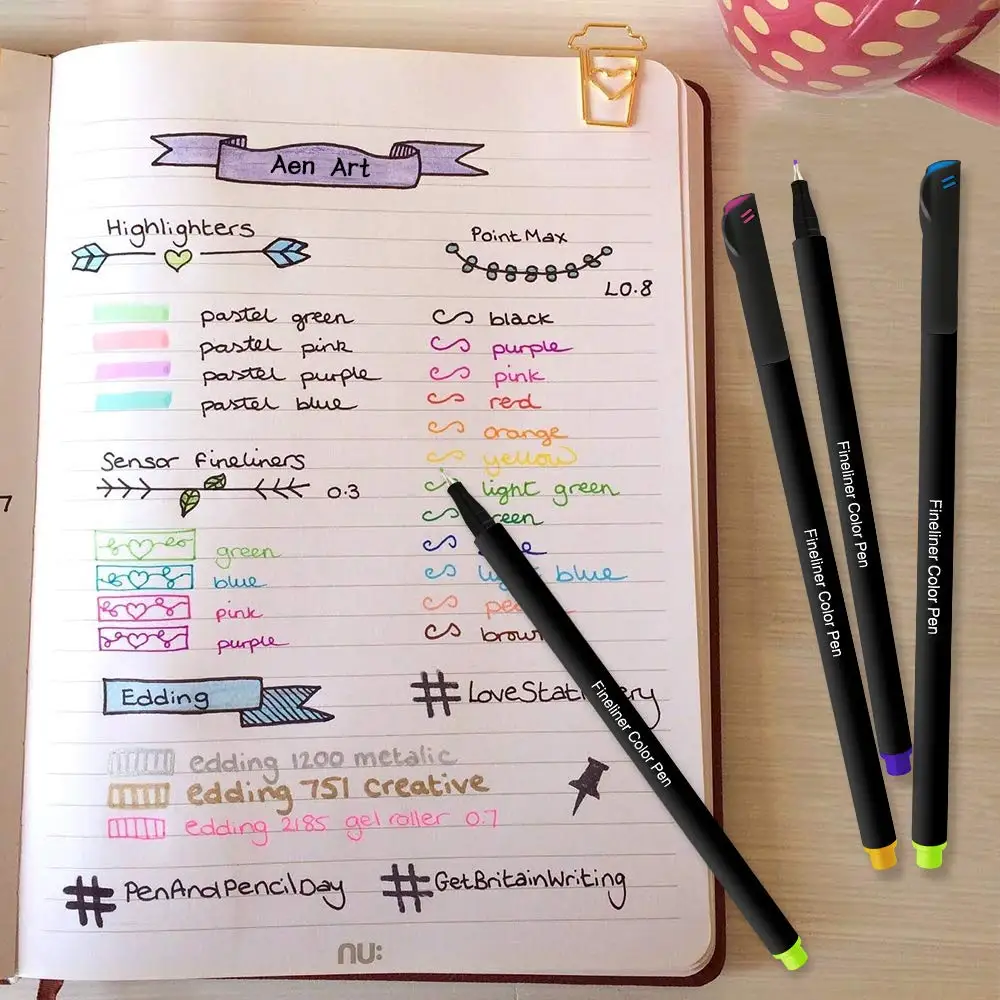 Aen Art
Highlighters
pastel green
pastel pink
pastel purple
pastel blue
Sensor Fineliners
0.3
green
blue
pink
purple
Edding
edding 1200 metalic
edding 751 creative
edding 2185 gel roller 0.7
#PenAndPencilDay
Point Max
L0.8
black
purple
pink
red
orange
yellow
light green
green
blue
light blue
brown
#LoveStationery
#GetBritainWriting
nu:
7
Fineliner Color Pen
Fineliner Color Pen
Fineliner Color Pen
Fineliner Color Pen